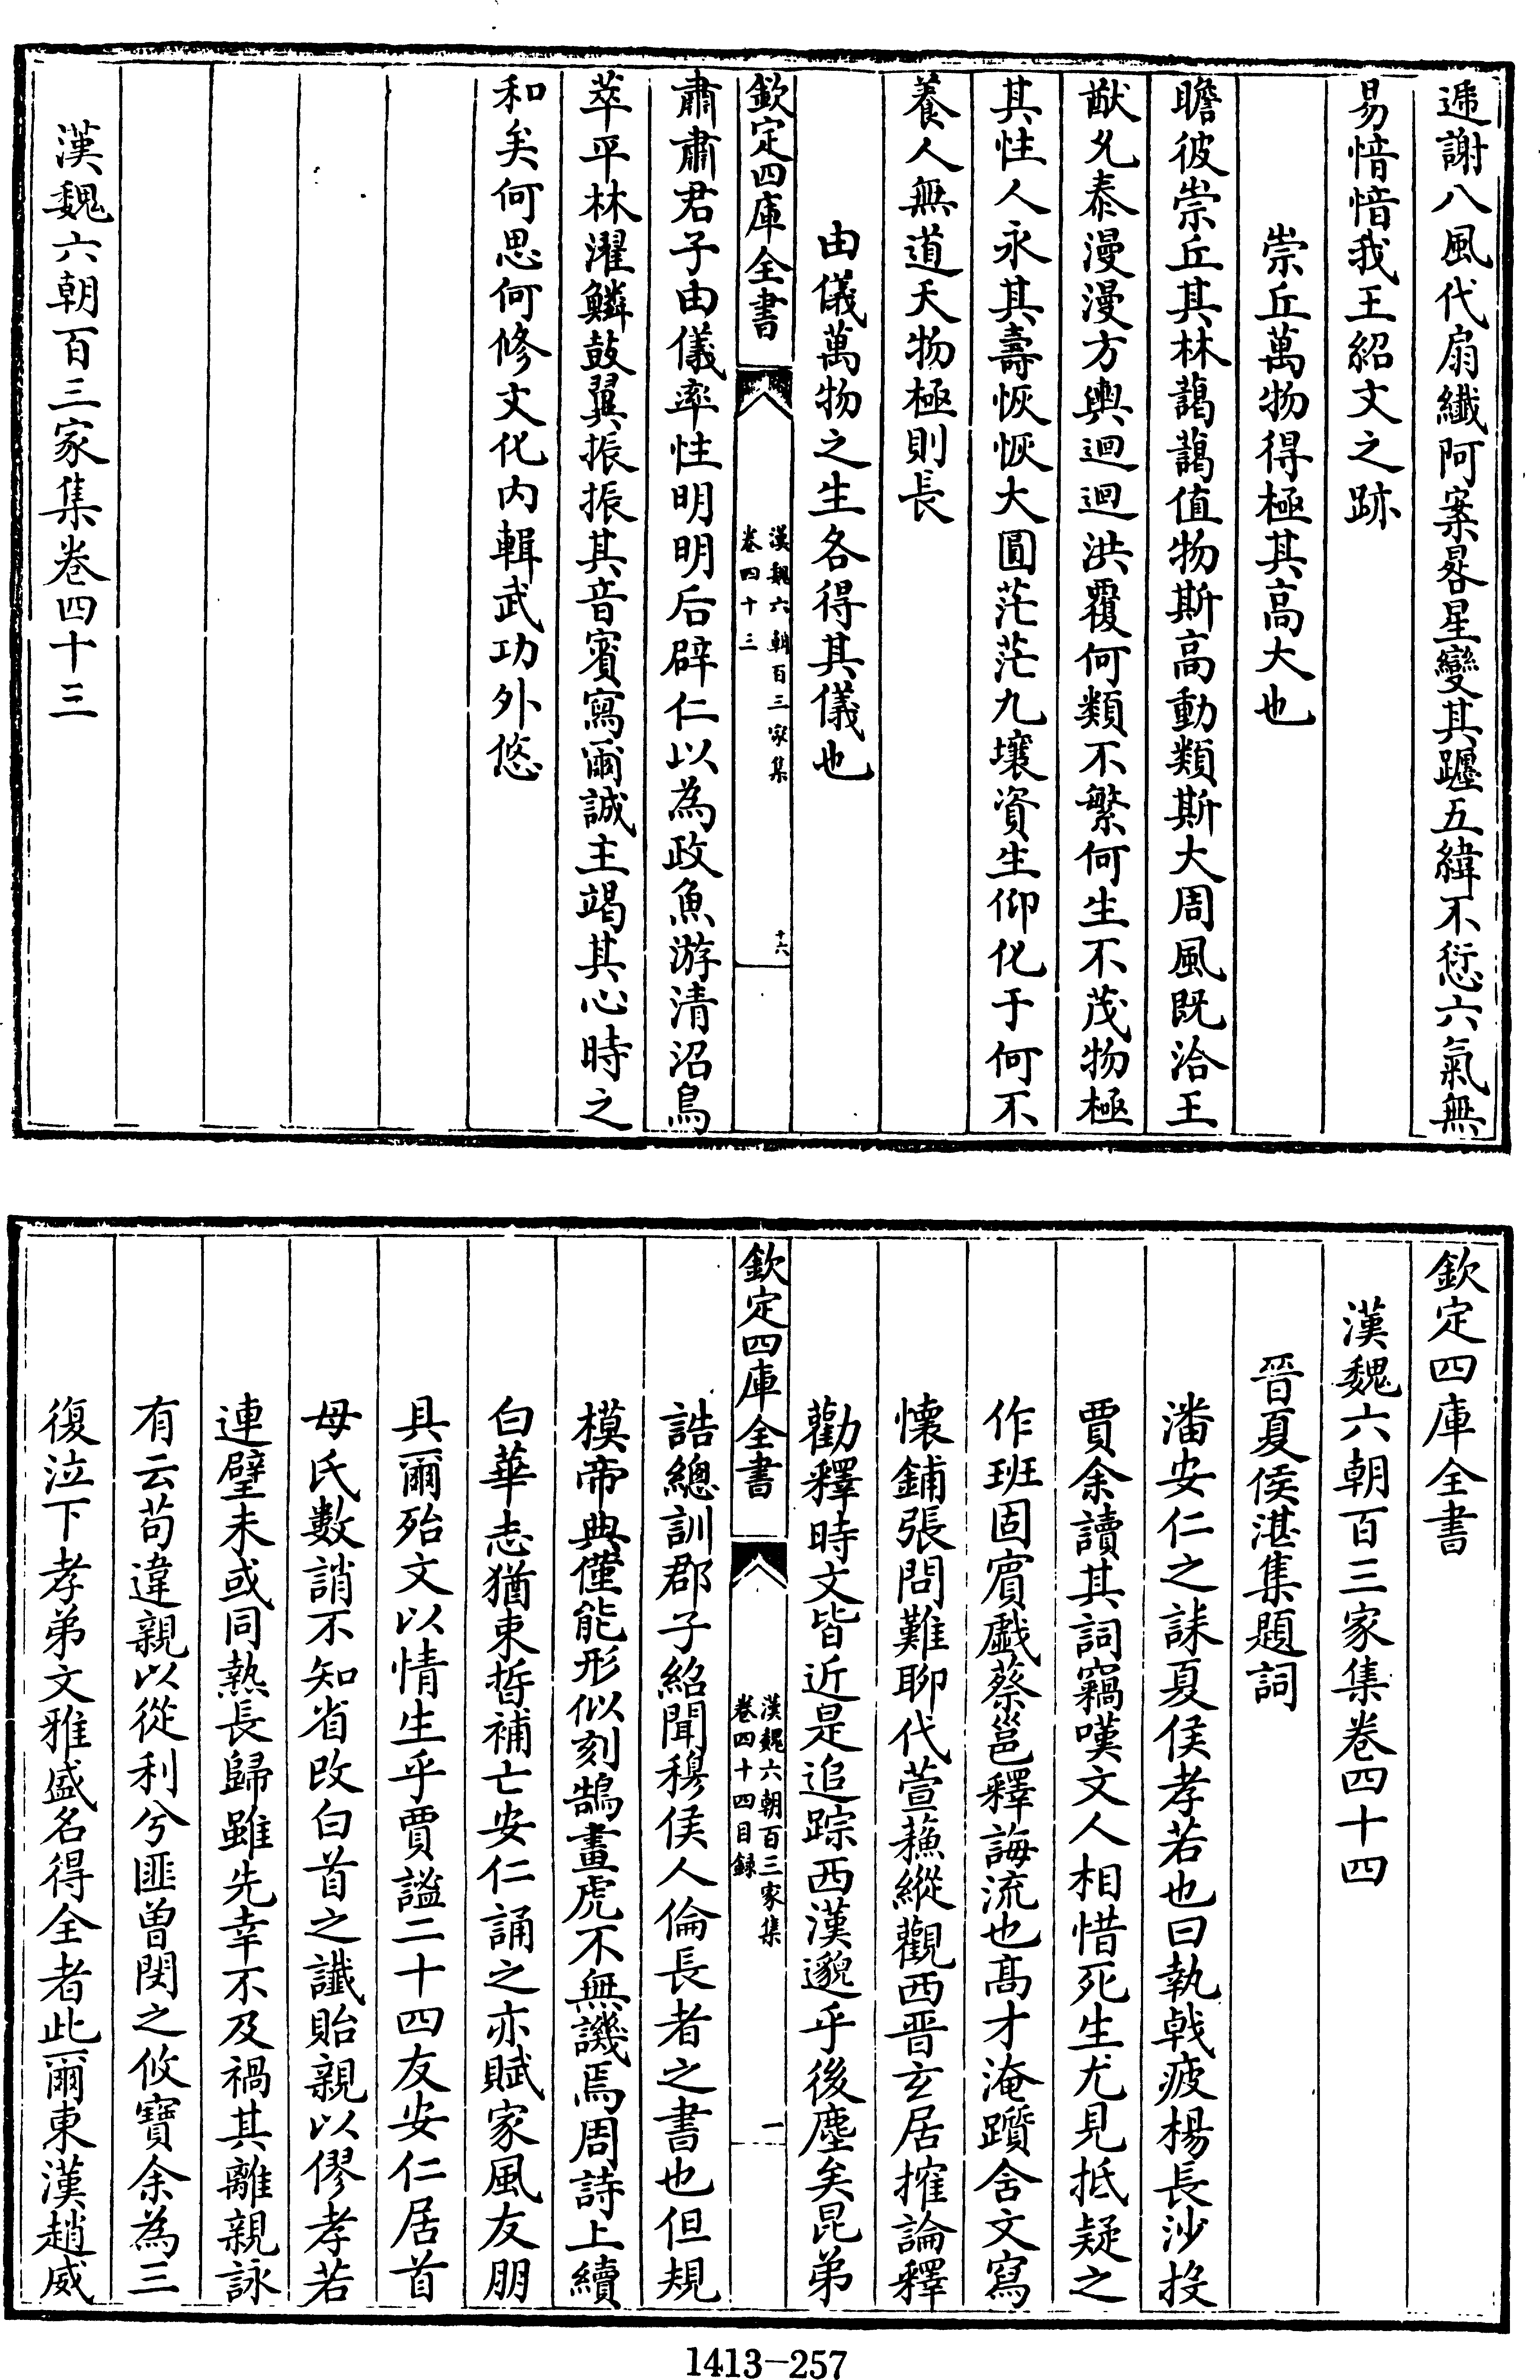 遞謝八風代扇纖阿案晷星變其躔五緯不愆六氣無
易愔愔我王紹文之跡
崇丘萬物得極其高大也
瞻彼崇丘其林藹藹值物斯高動類斯大周風既洽王
猷允泰漫漫方輿迴迴洪覆何類不繁何生不茂物極
其性人永其壽恢恢大圓茫茫九壤資生仰化于何不
養人無道天物極則長
由儀萬物之生各得其儀也
欽定四庫全書
漢魏六朝百三家集
卷四十三
十六
肅肅君子由儀率性明明后辟仁以為政魚游清沼鳥
萃平林濯鱗鼓翼振振其音賓寫爾誠主竭其心時之
和矣何思何修文化内輯武功外悠
漢魏六朝百三家集卷四十三
欽定四庫全書
漢魏六朝百三家集卷四十四
晉夏侯湛集題詞
潘安仁之誄夏侯孝若也曰執戟疲楊長沙投
賈余讀其詞竊嘆文人相惜死生尤見抵疑之
作班固賓戲蔡邕釋誨流也高才淹躓舍文寫
懷鋪張問難聊代萱蘓縱觀西晉玄居搉論釋
勸釋時文皆近是追踪西漢邈乎後塵矣昆弟
欽定四庫全書
漢魏六朝百三家集
卷四十四目録
一
誥總訓郡子紹聞穆侯人倫長者之書也但規
模帝典僅能形似刻鵠畫虎不無譏焉周詩上續
白華志猶束晳補亡安仁誦之亦賦家風友朋
具爾殆文以情生乎賈謐二十四友安仁居首
母氏數誚不知省改白首之讖貽親以僇孝若
連璧未或同熱長歸雖先幸不及禍其離親詠
有云茍違親以從利兮匪曾閔之攸寶余為三
復泣下孝弟文雅盛名得全者此爾東漢趙威
1413—257